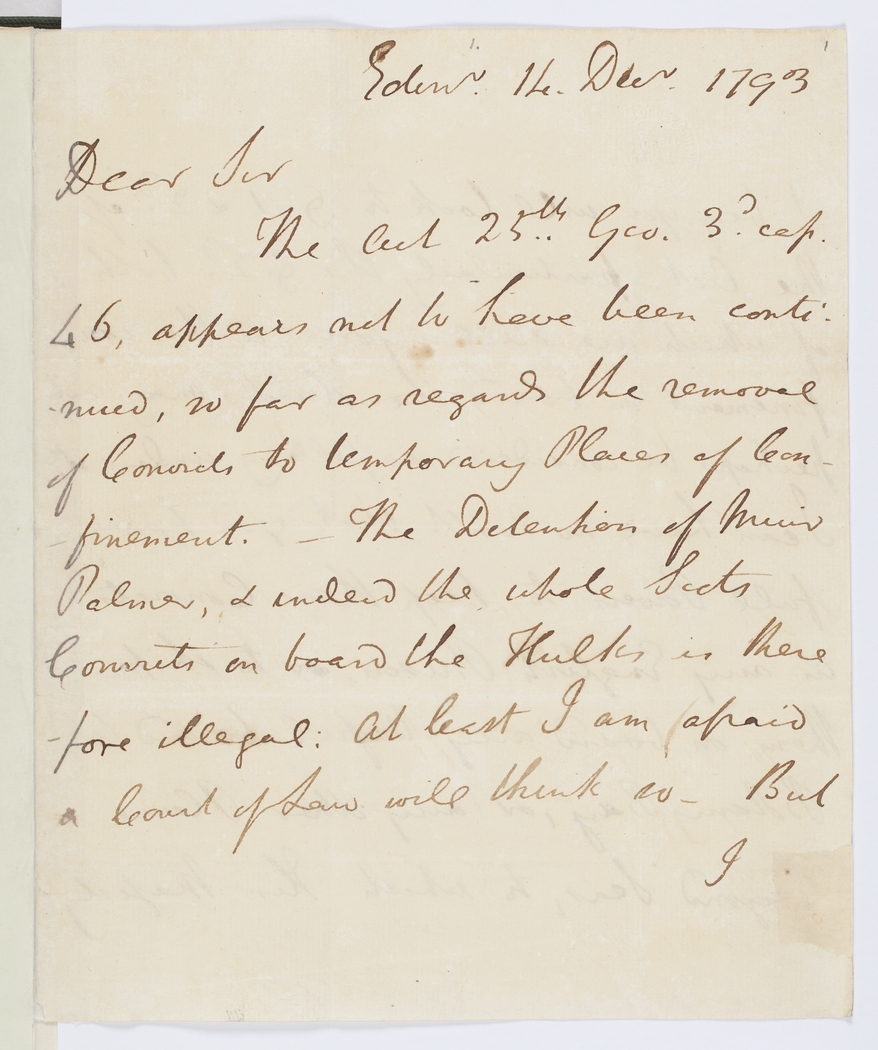 Edinr. 14. Decr. 1793
Dear Sir
The Act 25th. Geo. 3d. cap.
46, appears not to have been conti-
-nued, so far as regards the removal
of Convicts to temporary Places of Con-
-finement. – The Detention of Muir
Palmer, & indeed the whole Scots
Convicts on board the Hulks is there
-fore illegal: At least I am afraid
a Court of Law will think so – But
I